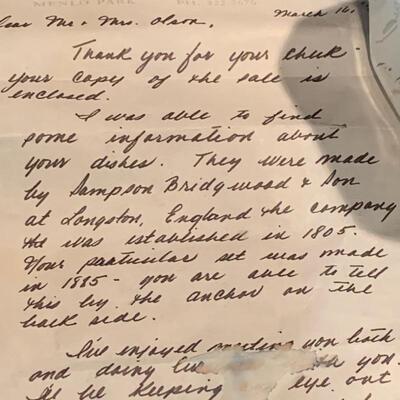 MENLO PARK PH. 322-3676
Dear Mr. & Mrs. Olson, March 16,
Thank you for your check -
your copy of the sale is
enclosed.
I was able to find
some information about
your dishes. They were made
by Sampson Bridgwood & Son
at Longton, England the company
was established in 1805.
Your praticular set was made
in 1885 - you are able to tell
this by the anchor on the
back side.
I've enjoyed meeting you both
and doing you.
I'll be keeping eye out